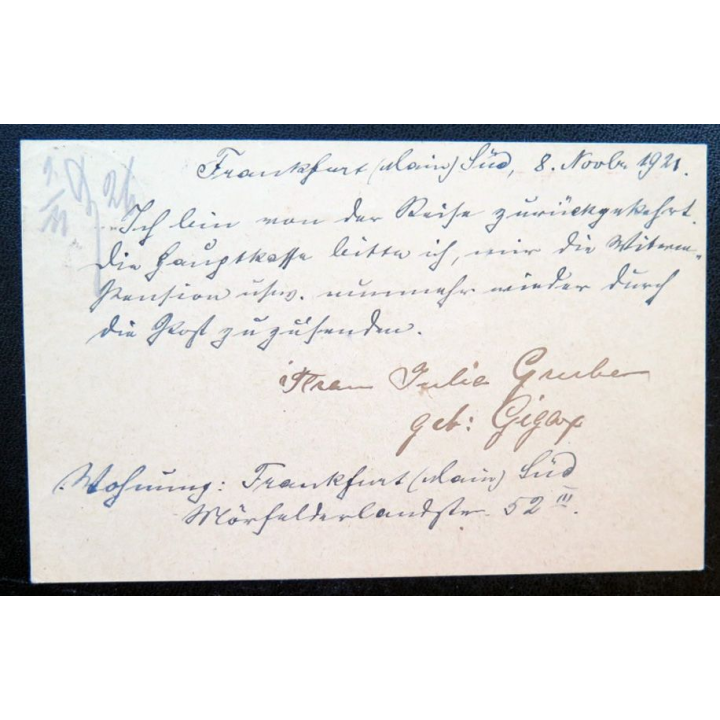 Frankfurt (Main) Süd, 8. Novbr. 1921.
Ich bin von der Reise zurückgekehrt.
Die Hauptkasse bitte ich, mir die Witwen-
Pension usw. nunmehr wieder durch
die Post zuzusenden.
Frau Julie Gruber
geb: Gigax
Wohnung: Frankfurt (Main) Süd
Mörfelderlandstr. 52 III.